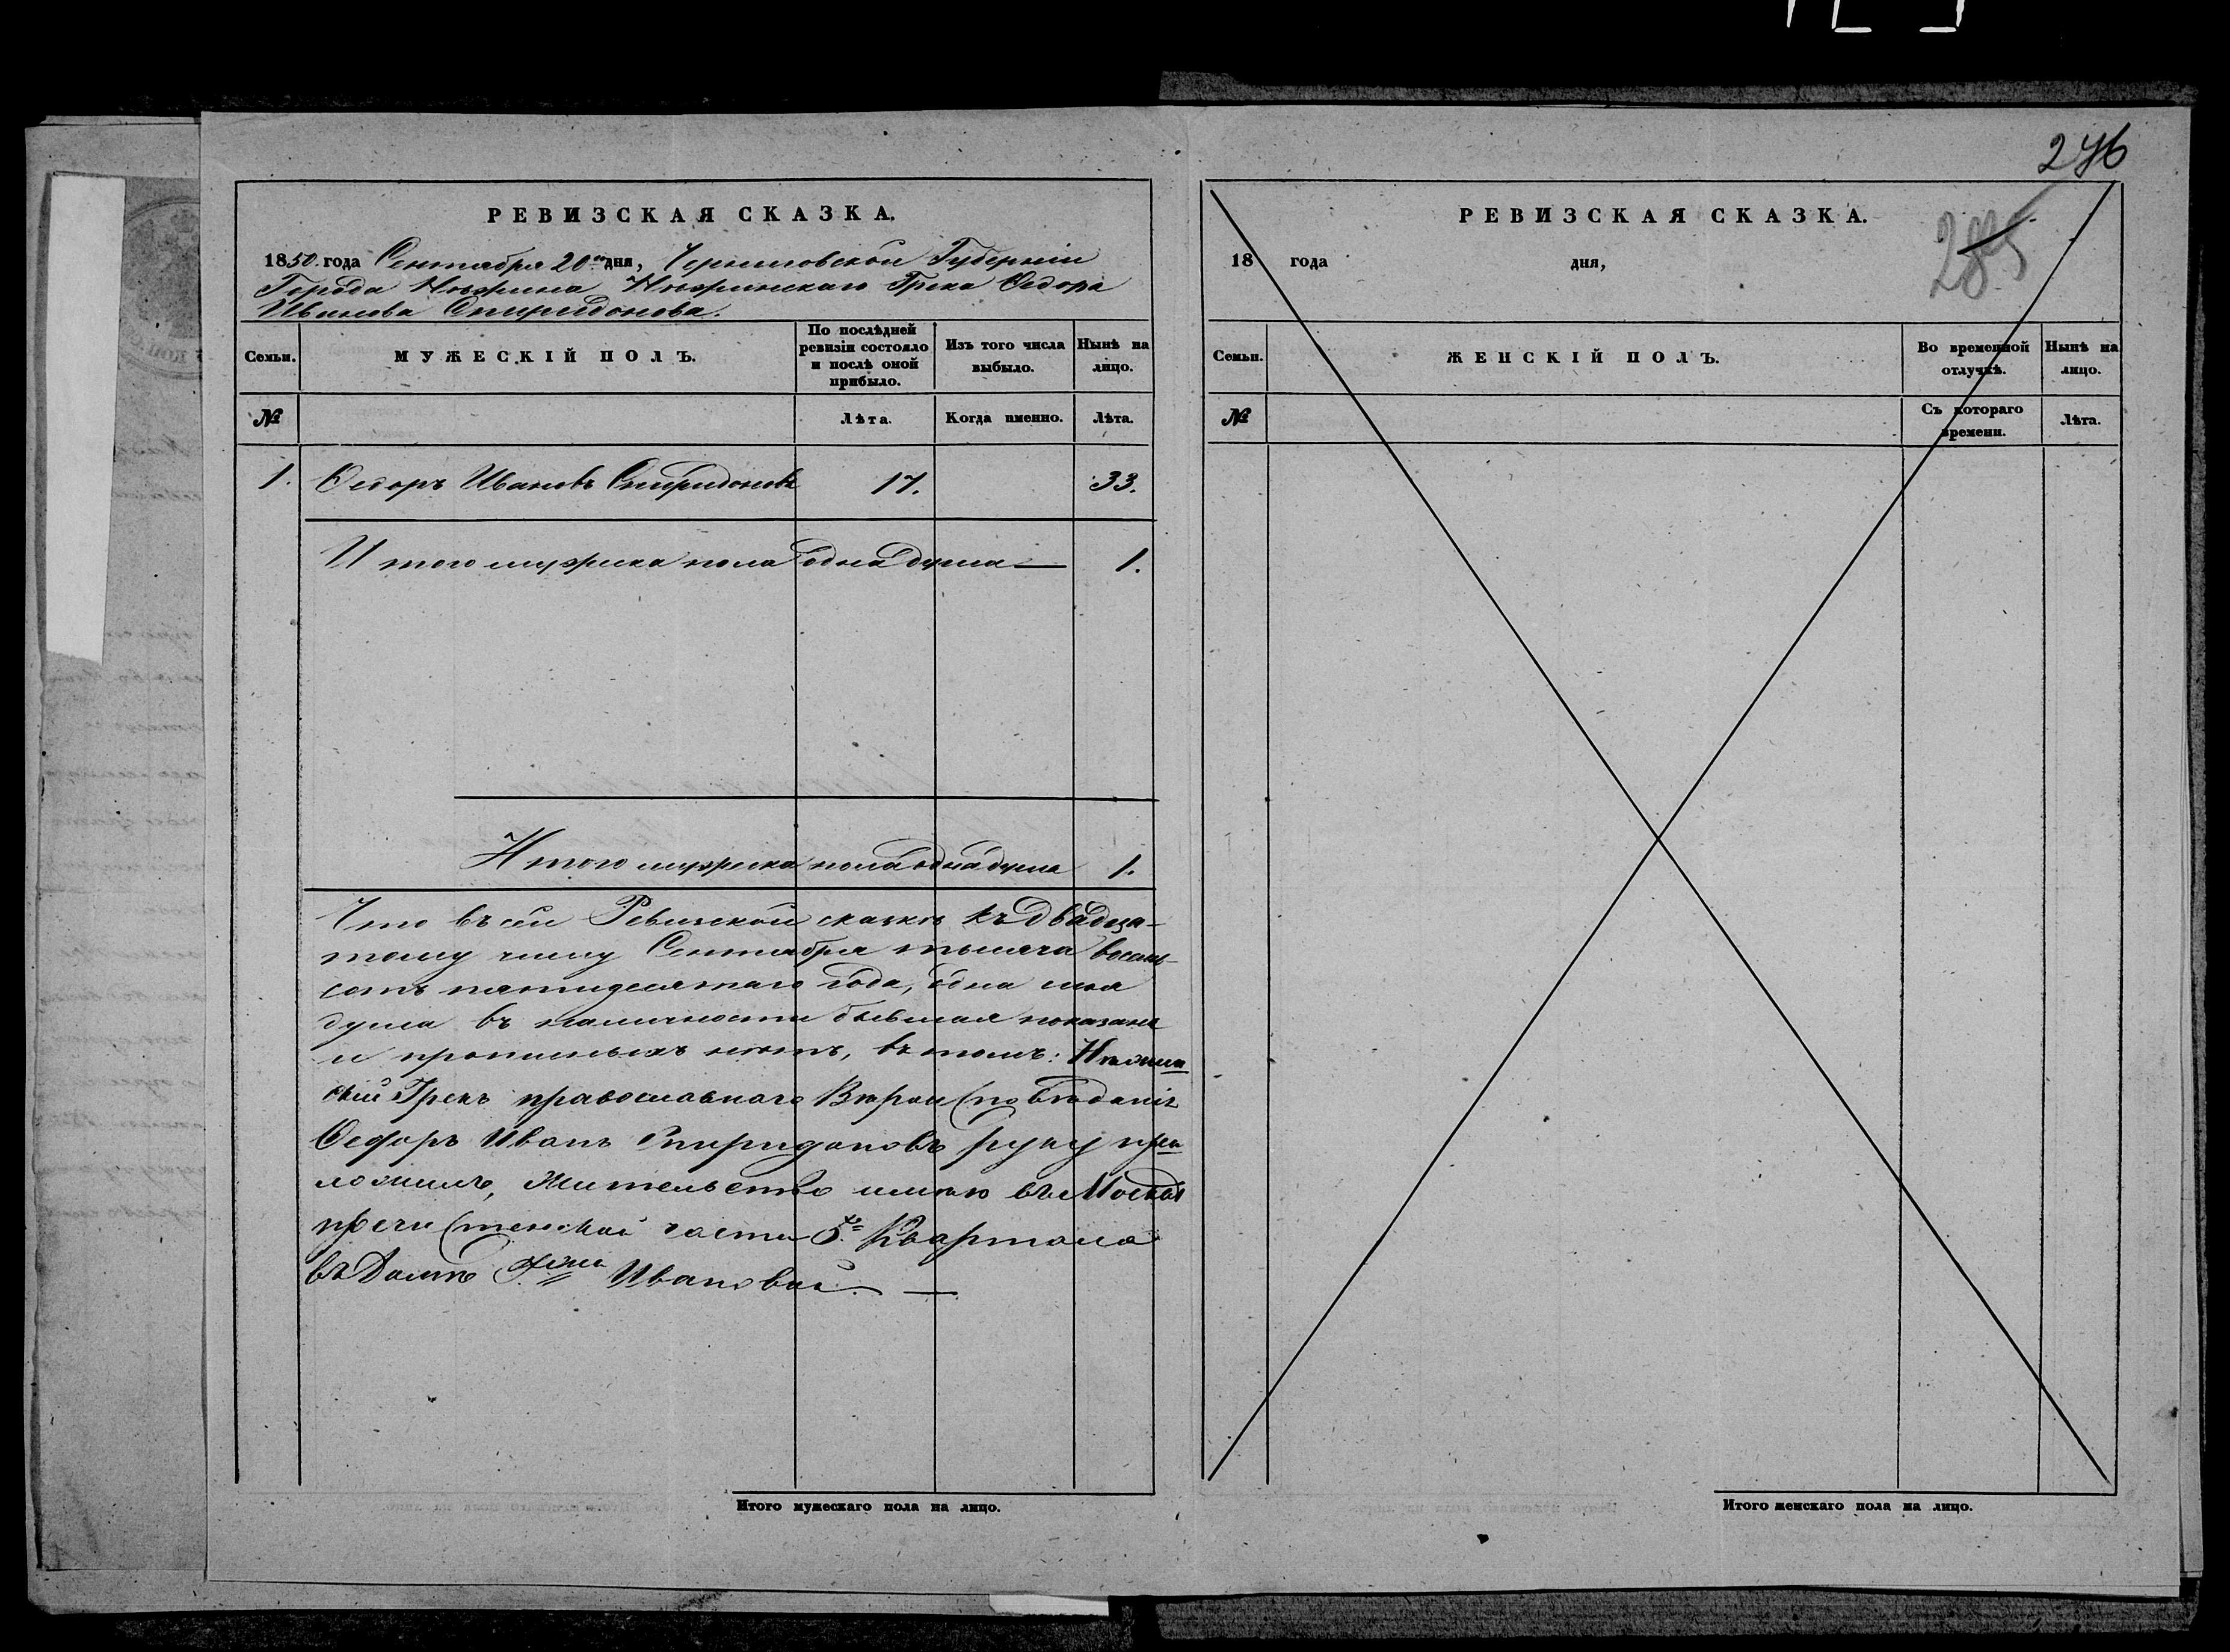 276
285
РЕВИЗСКАЯ СКАЗКА.
1850. года Сентября 20го дня, Черниговской Губерніи
Города Нѣжина Нѣжинскаго Грека Ѳедора
Иванова Спиридонова.
Семьи.
МУЖЕСКІЙ ПОЛЪ.
По послѣдней ревизіи состояло и послѣ оной прибыло.
Изъ того числа выбыло.
Нынѣ на лицо.
№
Лѣта.
Когда именно.
Лѣта.
1. Ѳедоръ Ивановъ Спиридоновъ 17. 33.
И того мужеска пола одна душа — 1.
И того мужеска пола одна душа 1.
Что въ сей Ревизской сказкѣ къ двадца-
тому числу Сентября тысяча восемь-
сотъ пятидесятаго года, одна моя
душа въ наличности бывшая показана
и прописныхъ нѣтъ, въ томъ: Нѣжин
скій Грекъ православнаго
Ѳедоръ Иванъ Спиридоновъ руку при
ложилъ, Жительство имѣю въ Москвѣ
пречистенской части 5го Квартала
въ Домѣ Ивановой. —
Итого мужескаго пола на лицо.
РЕВИЗСКАЯ СКАЗКА.
18 года дня,
Семьи.
ЖЕНСКІЙ ПОЛЪ.
Во временной отлучкѣ.
Нынѣ на лицо.
№
Съ котораго времени.
Лѣта.
Итого женскаго пола на лицо.